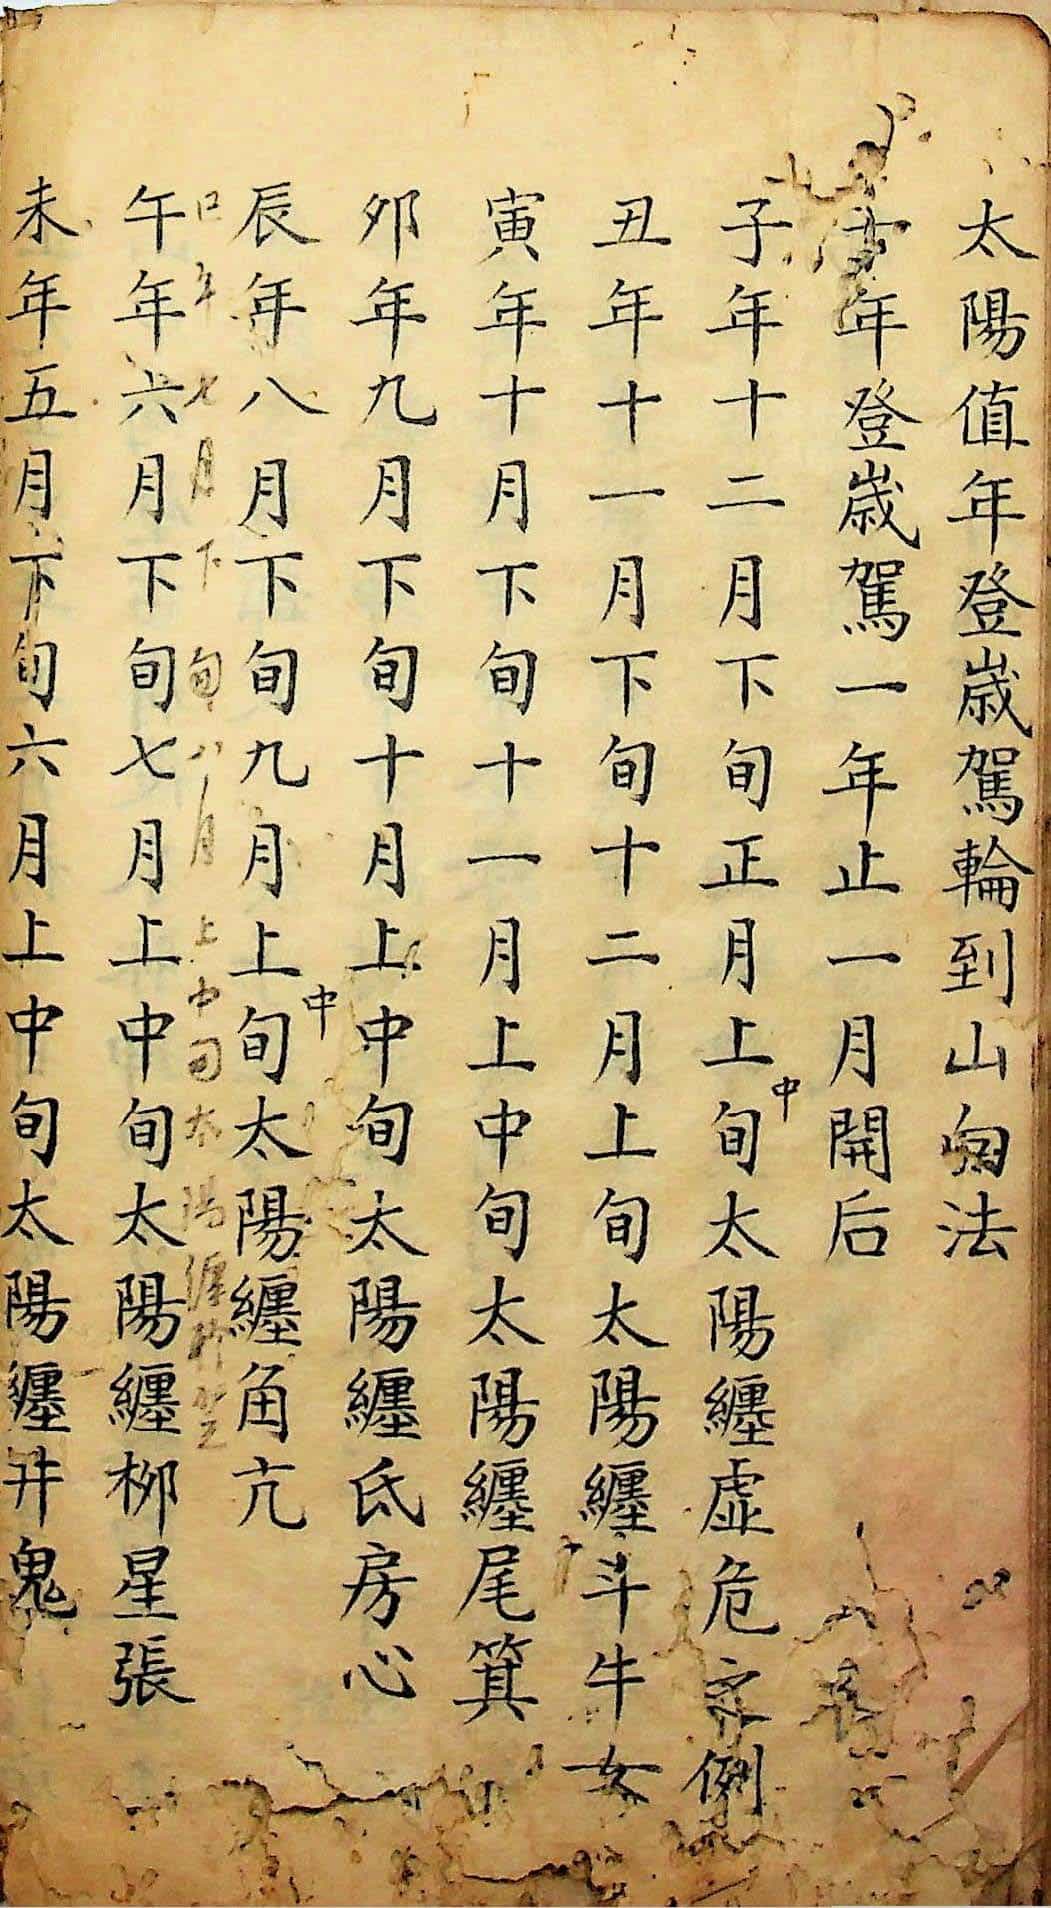 太陽值年登歲駕輪到山向法
年登歲駕一年止一月開后
子年十二月下旬正月上中旬太陽纏虛危 例
丑年十一月下旬十二月上旬太陽纏斗牛女
寅年十月下旬十一月上中旬太陽纏尾箕
夘年九月下旬十月上中旬太陽纏氐房心
辰年八月下旬九月上中旬太陽纏角亢
年七月下旬八月上中旬太陽纏
午年六月下旬七月上中旬太陽纏柳星張
未年五月下旬六月上中旬太陽纏井鬼